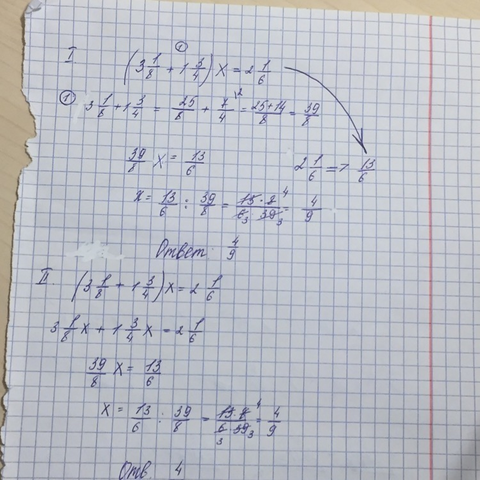 I (3 1/8 + 1 3/4) X = 2 1/6
① 3 1/8 + 1 3/4 = 25/8 + 7/4 \2 = 25+14/8 = 39/8
39/8 X = 13/6    2 1/6 => 13/6
X = 13/6 : 39/8 = 13·8 4/6 3 39 3 = 4/9
Ответ: 4/9
II. (3 1/8 + 1 3/4) X = 2 1/6
3 1/8 X + 1 3/4 X = 2 1/6
39/8 X = 13/6
X = 13/6 : 39/8 = 13·8 4/6 3 39 3 = 4/9
Отв 4